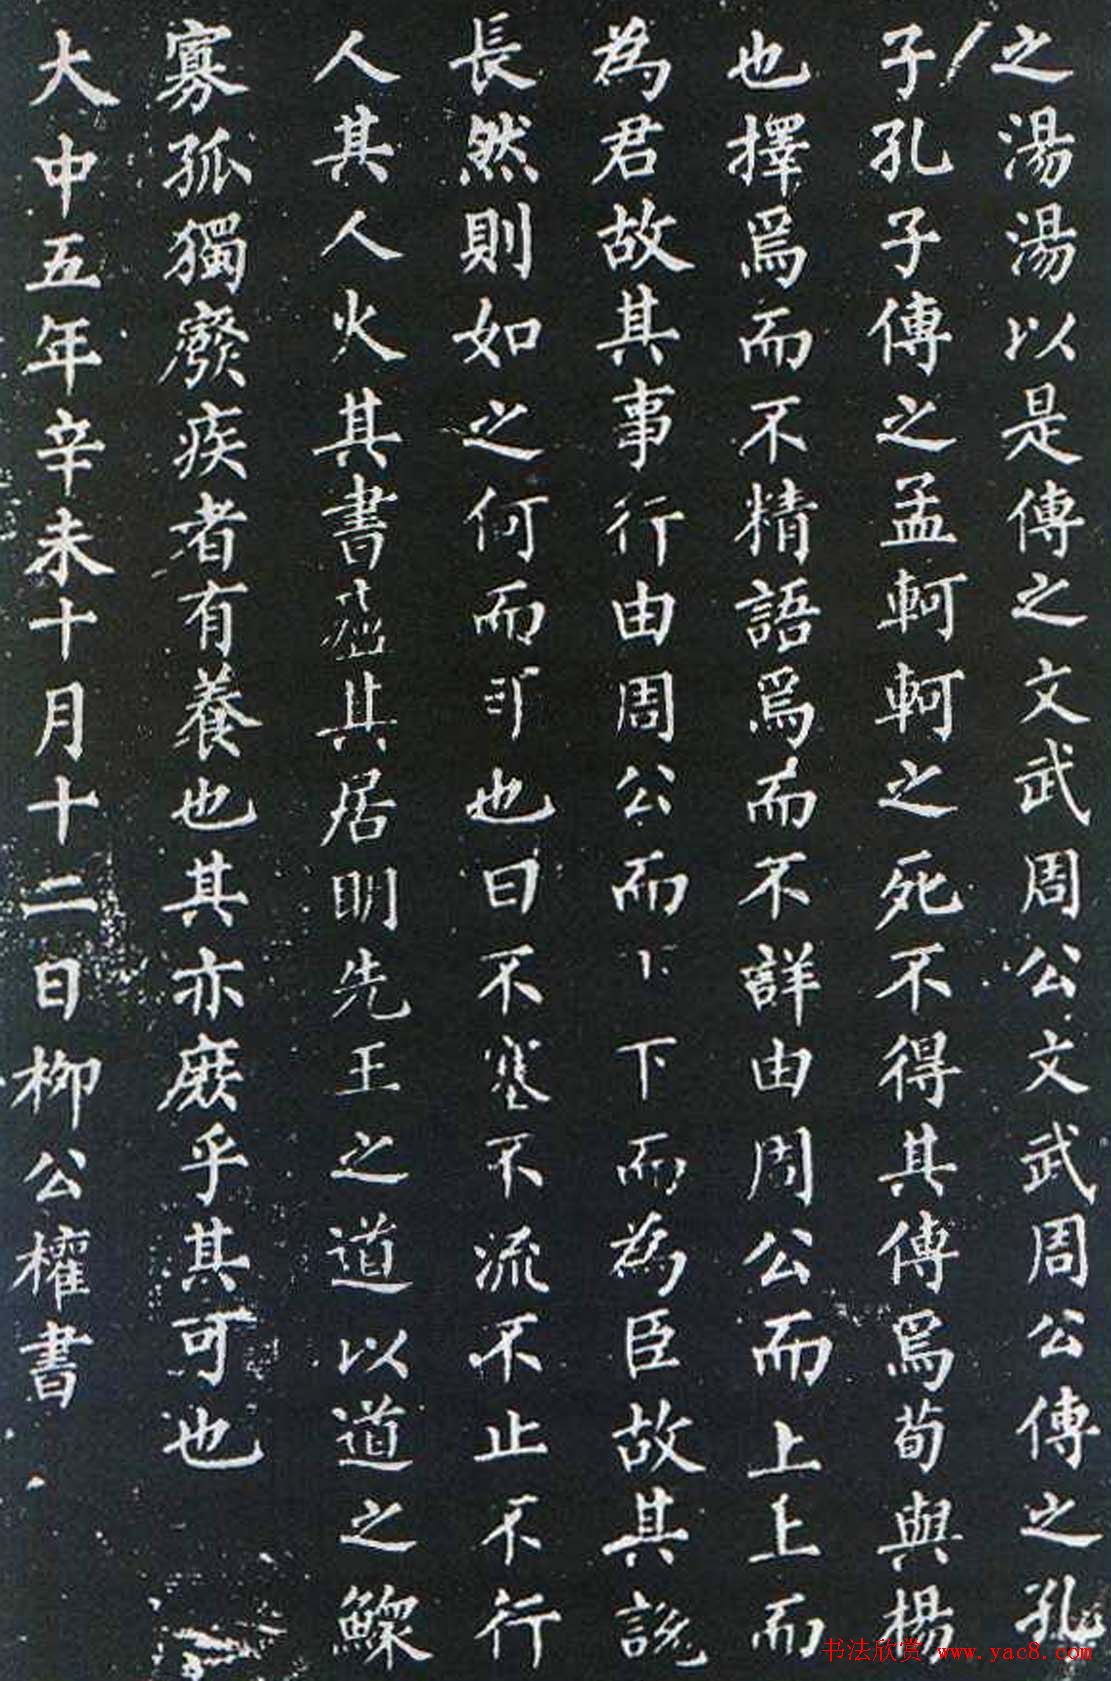 之湯湯以是傳之文武周公文武周公傳之孔
子孔子傳之孟軻軻之死不得其傳焉荀與楊
也擇焉而不精語焉而不詳由周公而上上而
為君故其事行由周公而下下而為臣故其說
長然則如之何而也曰不塞不流不止不行
人其人火其書其居明先王之道以道之鰥
寡孤獨廢疾者有養也其亦庶乎其可也
大中五年辛未十月十二日柳公權書
书法欣赏 www.yac8.com